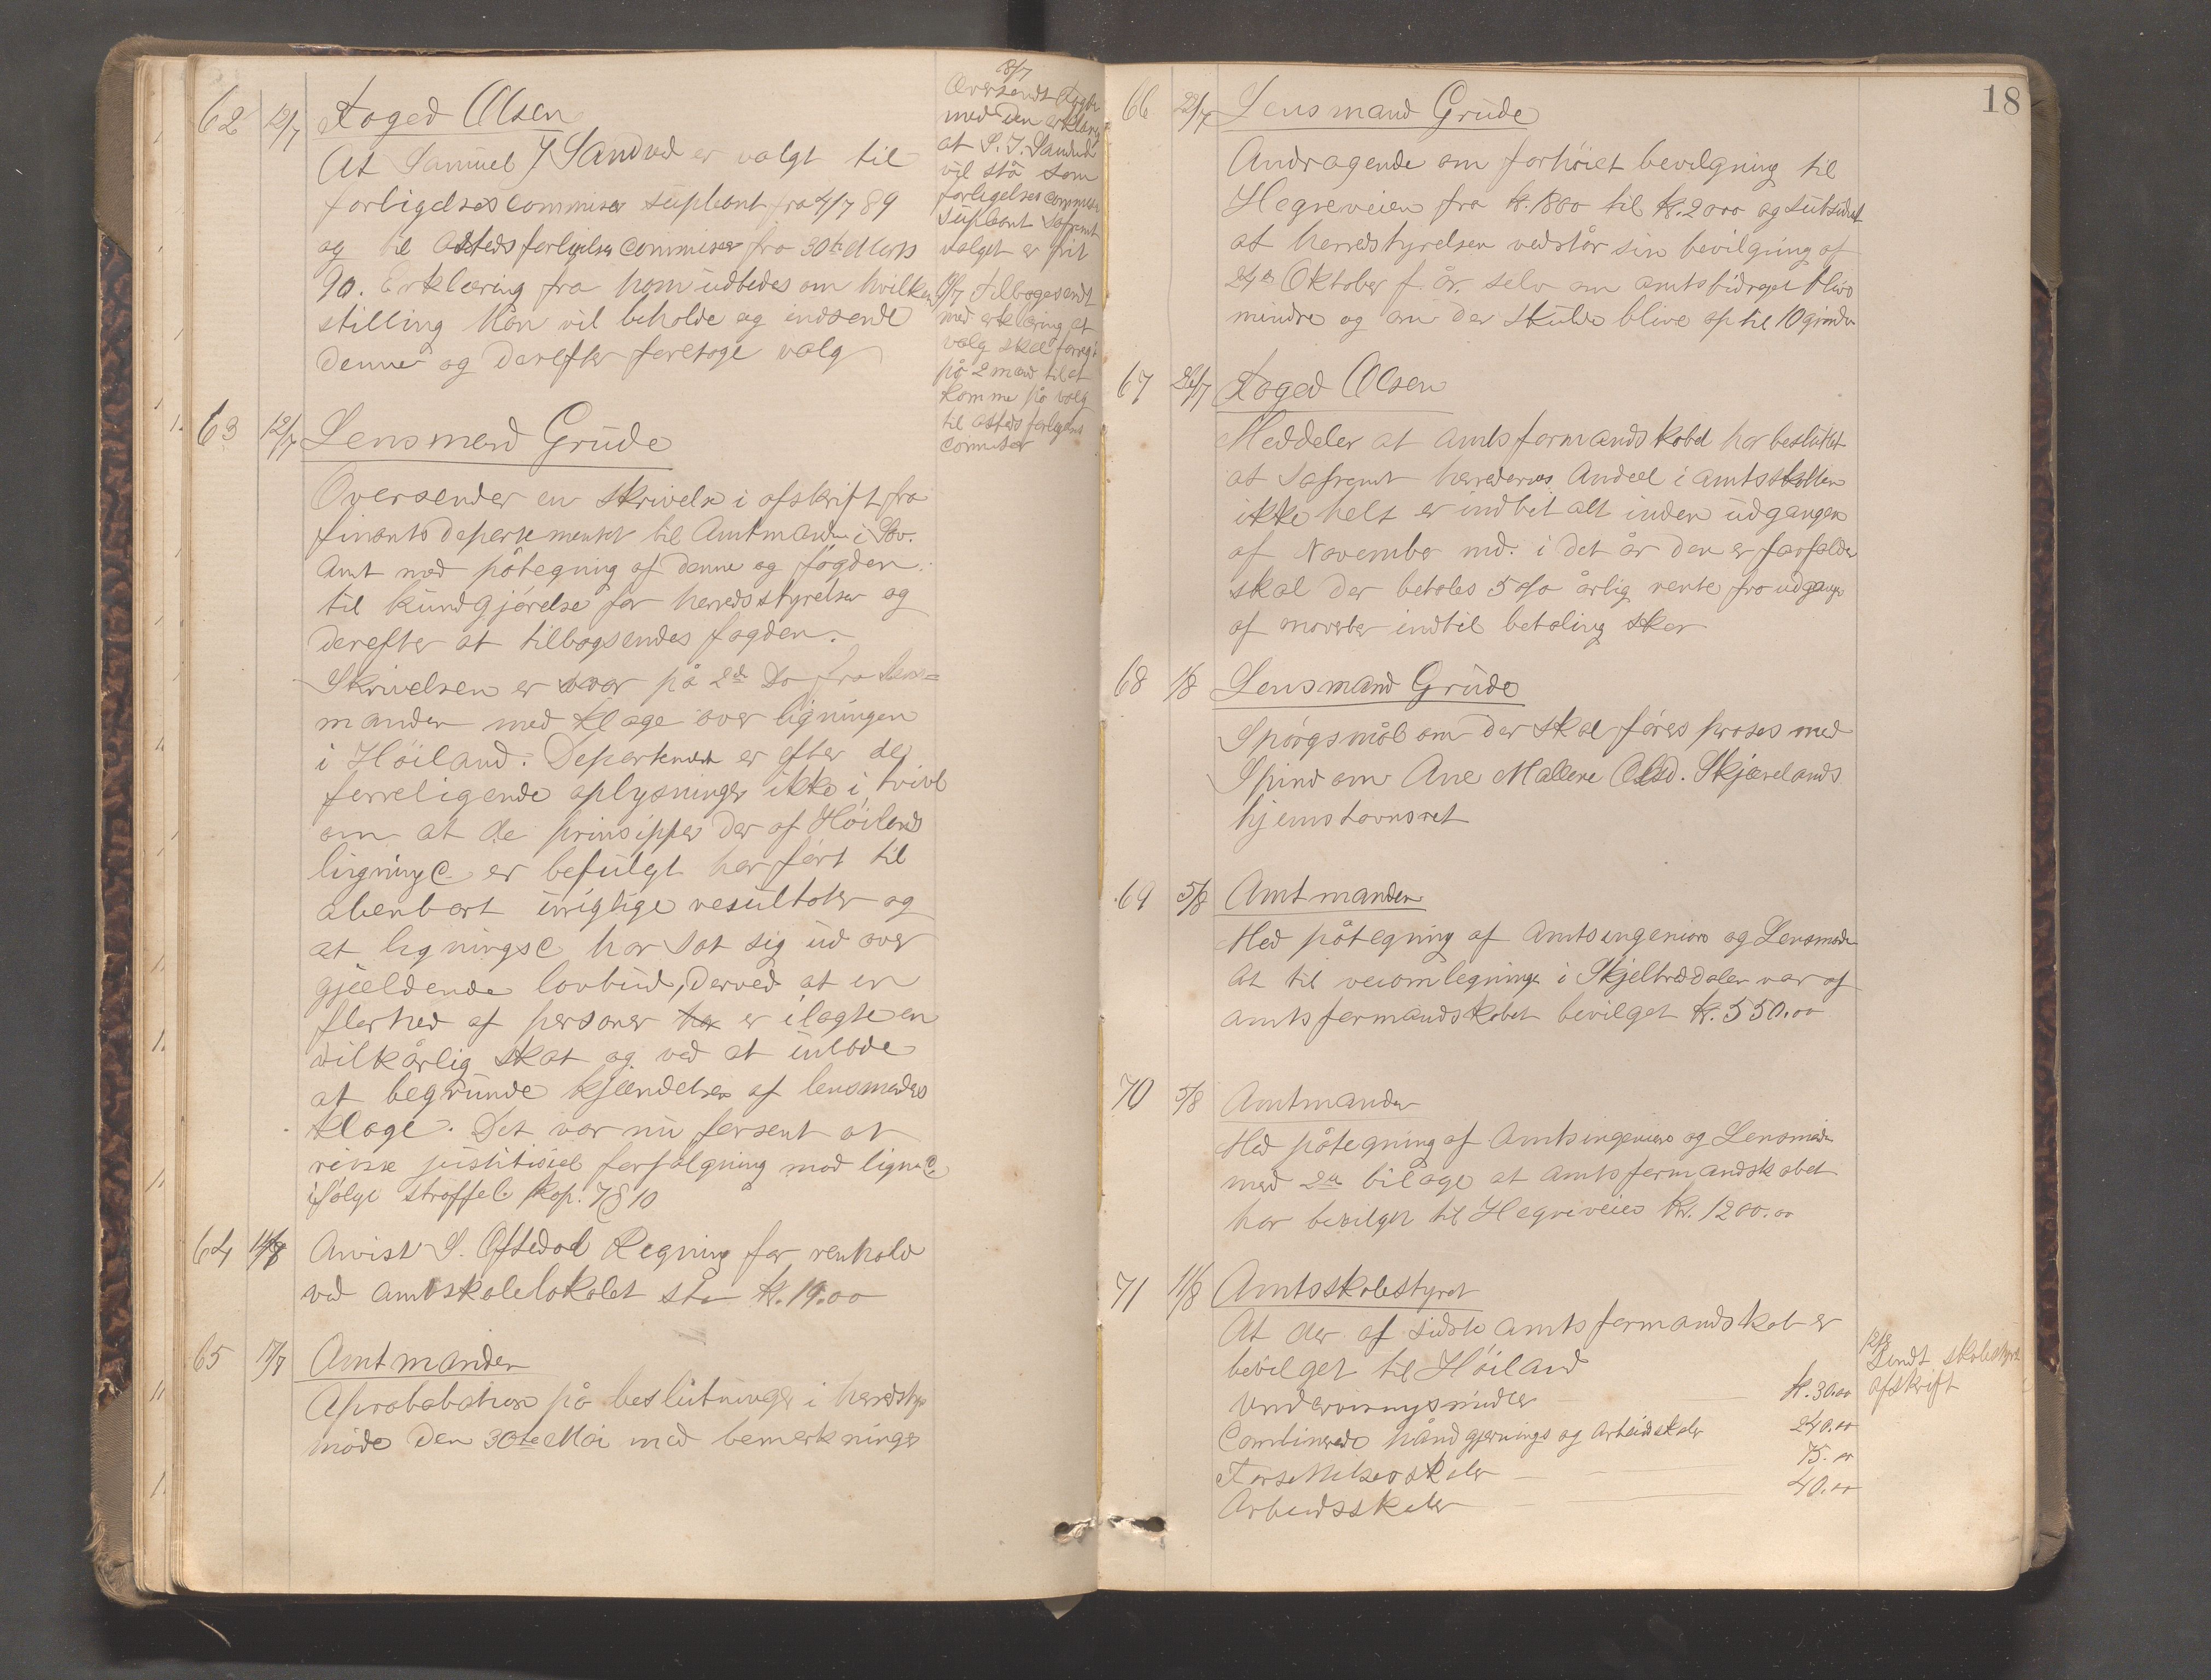 62 12/7 Foged Olsen
At Samuel J Sandved er valgt til
forligelsescommiser supleant fra 4/7 89
og til Åstedsforligelsecommiser fra 30te Marts
90. Erklæring fra ham udbedes om hvilken
stilling han vil beholde og indsende
denne og derefter foretage valg
8/7
Oversendt Fogden
med den erklæring
at S. J. Sandved
vil stå som
forligelsescommiser
supleant såfremt
valget er frit
Tilbagesendt
med erklæring at
valg skal foregå
på 2 mænd til at
komme på valg
til åstedsforligelses
commiser
63 12/7 Lensmand Grude
Oversender en skrivelse i afskrift fra
finantsdepartementet til Amtmanden i Stav.
Amt med påtegning af denne og fogden
til kundgjørelse for herredsstyrelsen og
derefter at tilbagsendes fogden.
Skrivelsen er svar på 2de Do fra Lens=
manden med klage over ligningen
i Höiland. Departementet er efter de
foreligende oplysninger ikke i tvivl
om at de prinsipper der af Höilands
ligningsC er befulgt har ført til
åbenbart urigtige resultater og
at ligningsC har sat sig ud over
gjældende lovbud, derved at en
flerhed af personer er ilagte en
vilkårlig skat og ved at unlade
at begrunde kjændelsen af lensmandens
klage. Det var nu forsent at
reise justiticiel forfølgning mod lignsC
ifølge straffel. kap. 7 § 10
64 Anvist S. Aftedal Regning for renhold
ved amtskolelokalet stor kr. 19.00
65 17/7 Amtmanden
Aprobabation på beslutninger i herredsstyr
møde den 30te Mai med bemerkninger
18
66 22/7 Lensmand Grude
Andragende om forhöiet bevilgning til
Hegreveien fra kr. 1800 til kr. 2000 og subsidiært
at herredstyrelsen vedstår sin bevilgning af
24de Oktober f. år. selv om amtsbidraget blive
mindre og om der skulde blive op til 10 grinder
67 26/7 Foged Olsen
Meddeler at amtsformandskabet har besluttet
at såfremt herredernes Andeel i amtsskatten
ikke helt er indbetalt inden udgangen
af November md. i det år den er forfalden
skal der betales 5 o/o årlig rente fra udgangen
af november indtil betaling sker
68 1/8 Lensmand Grude
Spørgsmål om der skal føres proses med
Spind om Ane Mallene Olsd. Skjævelands
hjemstavnsret
69 5/8 Amtmanden
Med påtegning af Amtsingeniøren og Lensmanden
At til veiomlegning i Skjeltveddalen var af
amtsformandskabet bevilget kr. 550.00
70 5/8 Amtmanden
Med påtegning af Amtsingeniøren og Lensmanden
med 2de bilage at amtsformandskabet
har bevilget til Hegreveien kr. 1200.00
71 11/8 Amtsskolestyret
At der af sidste amtsformandskab er
bevilget til Höiland
Undervisningsmidler kr. 30.00
Combinerede håndgjernings og Arbeidsskoler 240.00
Forsettelsesskoler 75.00
Arbeidsskoler 40.00
12/8
Sendt skolestyret
afskrift